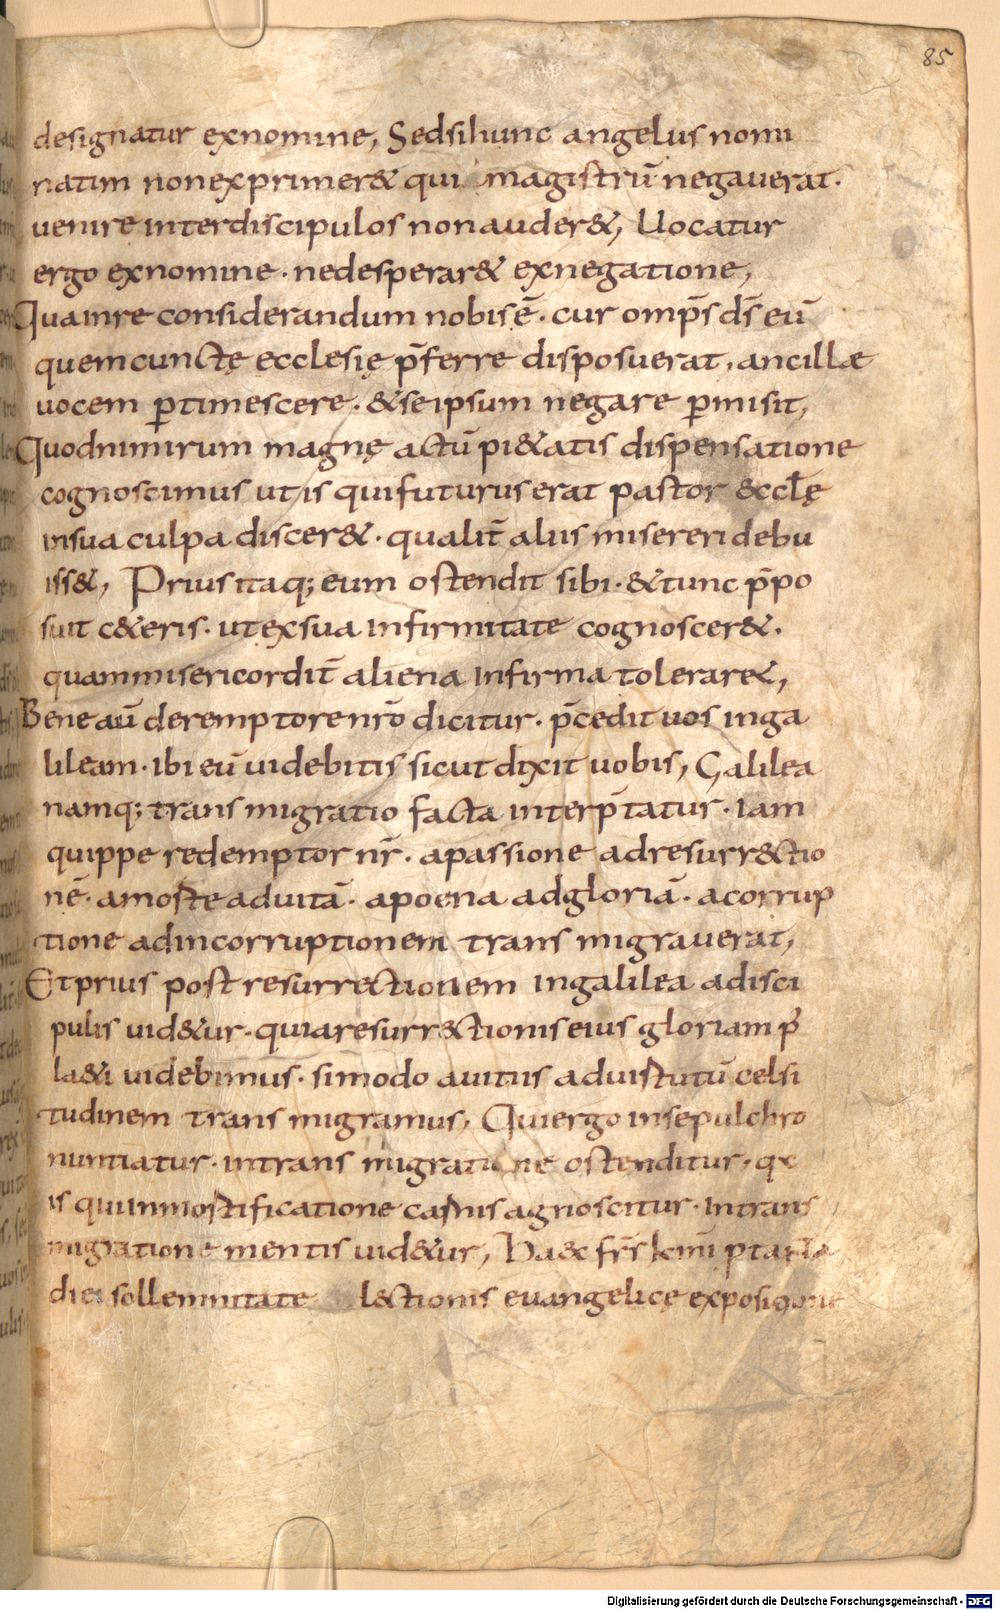 85
designatur exnomine, Sedsihunc angelus nomi
natim nonexprimer& qui magistrū negauerat.
uenire interdiscipulos nonauder&, Uocatur
ergo exnomine · nedesperar& exnegatione,
Quainre considerandum nobis ē · cur omp̄s d̄s eū
quemcunctę ecclesię p̄ferre disposuerat, ancillae
uocem ꝑtimescere · &seipsum negare ꝑmisit,
Quodnimirum magnę actū pi&atis dispensatione
cognoscimus ut is quifuturuserat pastor &ccłę
insua culpa discer& · qualit̄ aliis misereri debu
iss&, Prius itaq; eum ostendit sibi · &tunc p̄po
suit c&eris · utexsua infirmitate cognoscer& ·
quammisericordit̄ aliena infirma tolerar&,
Bene aū deremptore nr̄o dicitur · p̄cedit uos inga
lileam · ibi eū uidebitis sicut dixit uobis, Galilea
namq; trans migratio facta interp̄tatur · iam
quippe redemptor nr̄ · apassione adresurr&ctio
nē · amorte aduitā · apoena adgloriā · acorrup
tione adincorruptionem trans migrauerat,
Et prius post resurrectionem ingalilea adisci
pulis uid&ur · quiaresurr&ctionis eius gloriam p̄
la&i uidebimus · simodo auitiis aduirtutū celsi
tudinem trans migramus, Quiergo insepulchro
nuntiatur · intrans migratione ostenditur,
is quiinmortificatione carnis agnoscitur · intrans
migratione mentis uid&ur, Haec fr̄s
die sollemnitate l&ctionis euangelicę exposi
Digitalisierung gefördert durch die Deutsche Forschungsgemeinschaft - DFG